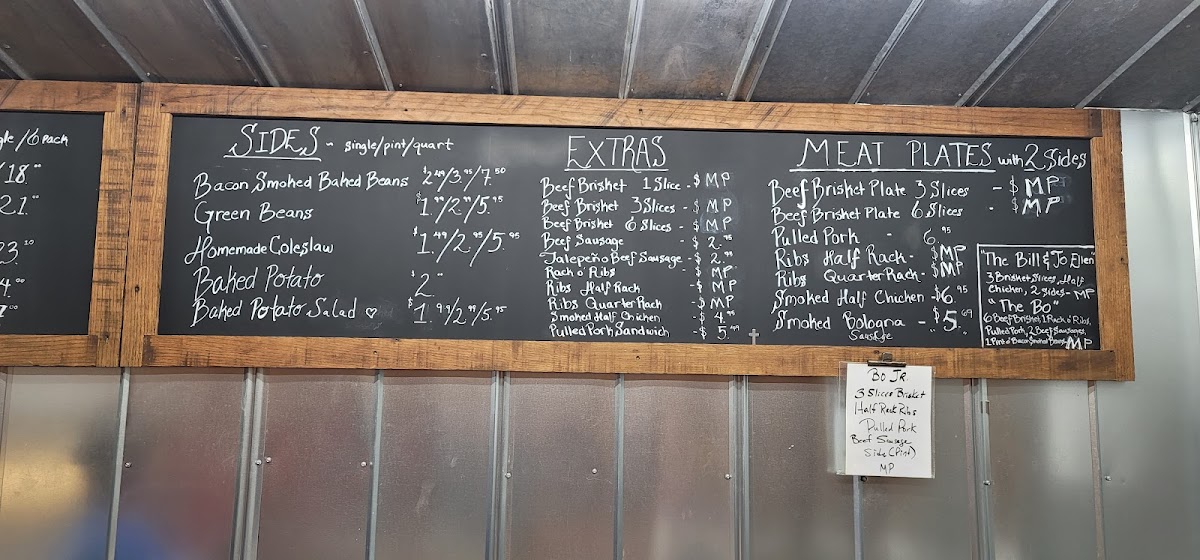 /6 Pack
18.
21.
SIDES ~ single/pint/quart
Bacon Smoked Baked Beans $2.49/3.95/7.50
Green Beans
Homemade Coleslaw $1.49/2.95/5.95
Baked Potato $2.
Baked Potato Salad ♡ $1.99/2.95/5.95
EXTRAS
Beef Brisket 1 Slice - $ MP
Beef Brisket 3 Slices - $ MP
Beef Brisket 6 Slices - $ MP
Beef Sausage - $ 2.95
Jalapeño Beef Sausage - $ 2.
Rack o' Ribs - $ MP
Ribs Half Rack - $ MP
Ribs Quarter Rack - $ MP
Smoked Half Chicken - $ 4.
Pulled Pork Sandwich - $ 5.49
MEAT PLATES with 2 Sides
Beef Brisket Plate 3 Slices - $ MP
Beef Brisket Plate 6 Slices - $ MP
Pulled Pork 6.95
Ribs Half Rack - $MP
Ribs Quarter Rack - $MP
Smoked Half Chicken - $6.95
Smoked Bologna - $5.69
Sausage " "
"The Bill & Jo Ellen"
3 Brisket Slices, Half
Chicken, 2 Sides - MP
"The Bo"
6 Beef Brisket, 1 Rack o' Ribs,
Pulled Pork, 2 Beef Sausages,
1 Pint o' Bacon Smoked Beans MP
Bo Jr.
3 Slices Brisket
Half Rack Ribs
Pulled Pork
Beef Sausage
Side (Pint)
MP